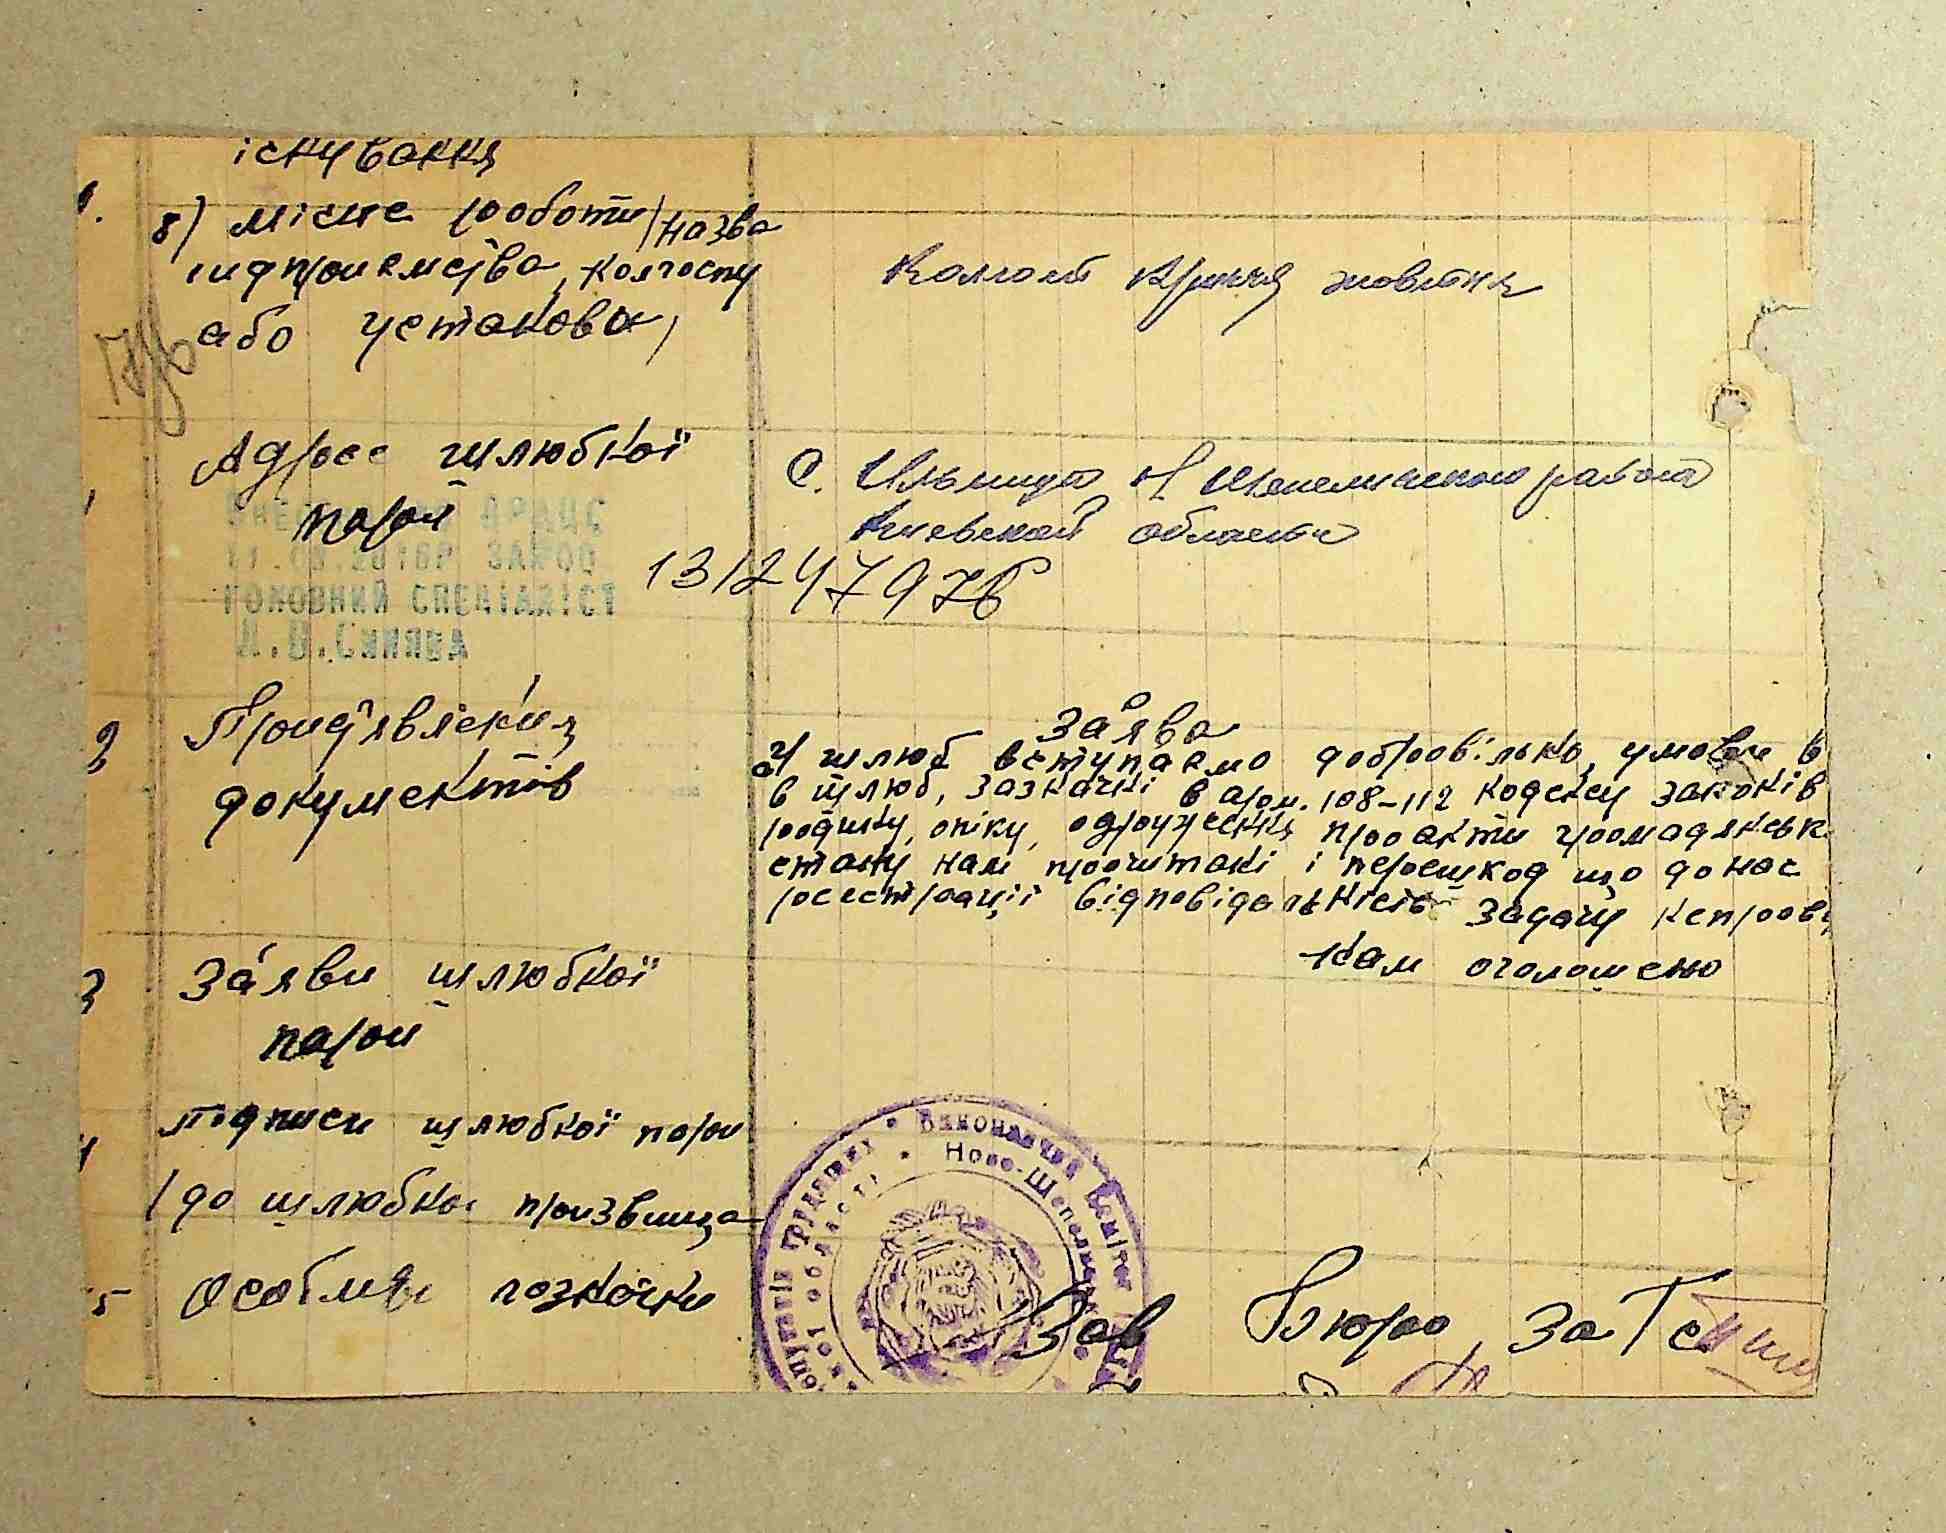 існування
8) місце роботи / назва
підприємства, колгоспу
або установи,
Колгосп жовтня
Адреса шлюбної
пари
С. Ильинцы Н Шепеличского района
Киевской области
АРАЦС
ГОЛОВНИЙ СПЕЦІАЛІСТ
131247976
2 Пред'явлених
документів
Заява
У шлюб вступаємо добровільно, умови в
в шлюб, зазначкі в арт. 108-112 кодексу законів
родину, опіку, одруження про акти громадянськ
стану нам прочитані і перешкод що до нас
реєстрації відповідальність задачу
Нам оголошено
3 Заяви шлюбної
пари
4 Підписи шлюбної пари
/ до шлюбної призвища
5 Особливі
Виконавчий Комітет
Ново-Шепелицької
депутатів трудящих
області
Зав Бюро ЗаГс